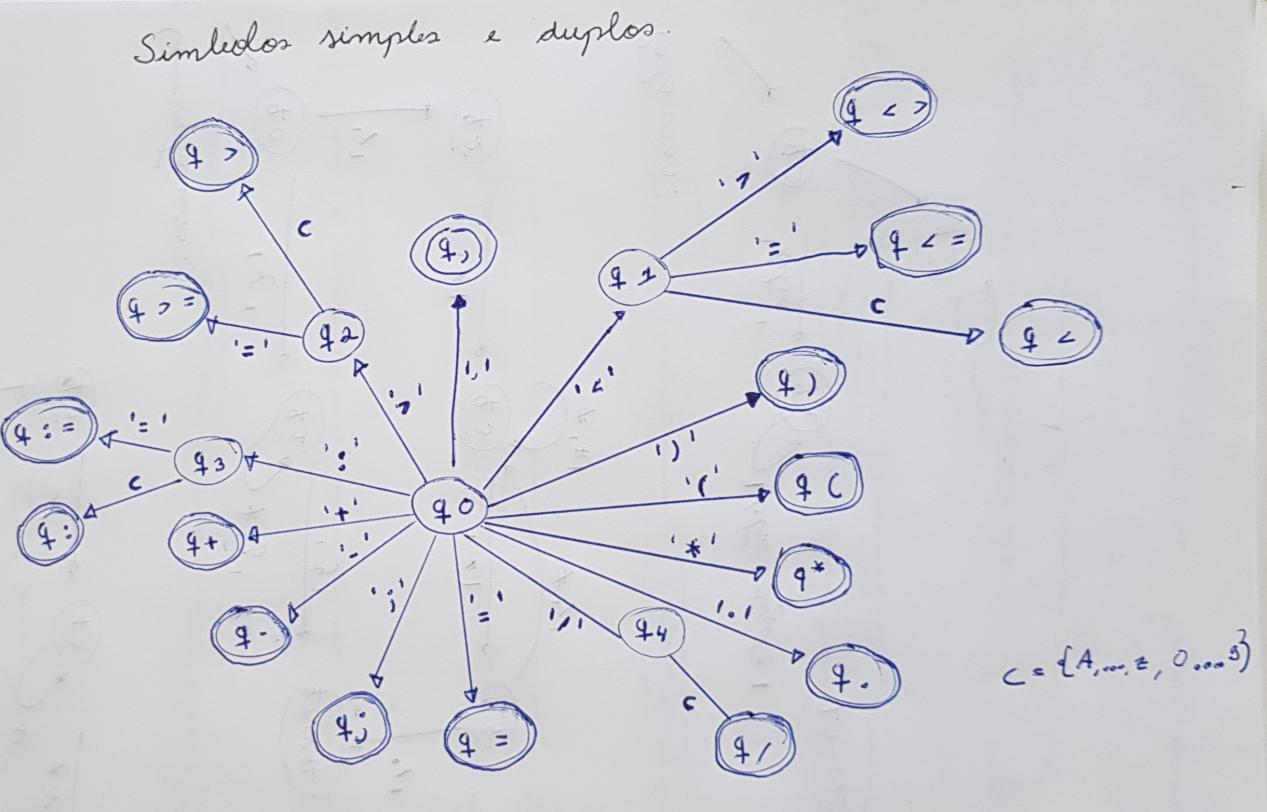 Simbolos simples e duplos.
q < >
q >
'>'
c
q,
q < =
'='
q 1
q > =
c
q 2
q <
'='
','
'<'
'>'
q )
q : =
'='
q 3
':'
')'
c
q (
'('
q 0
q :
q +
'+'
'*'
q *
'-'
';'
'='
'/'
'.'
q -
q 4
q .
c = {A,...,z, 0....9}
c
q ;
q =
q /